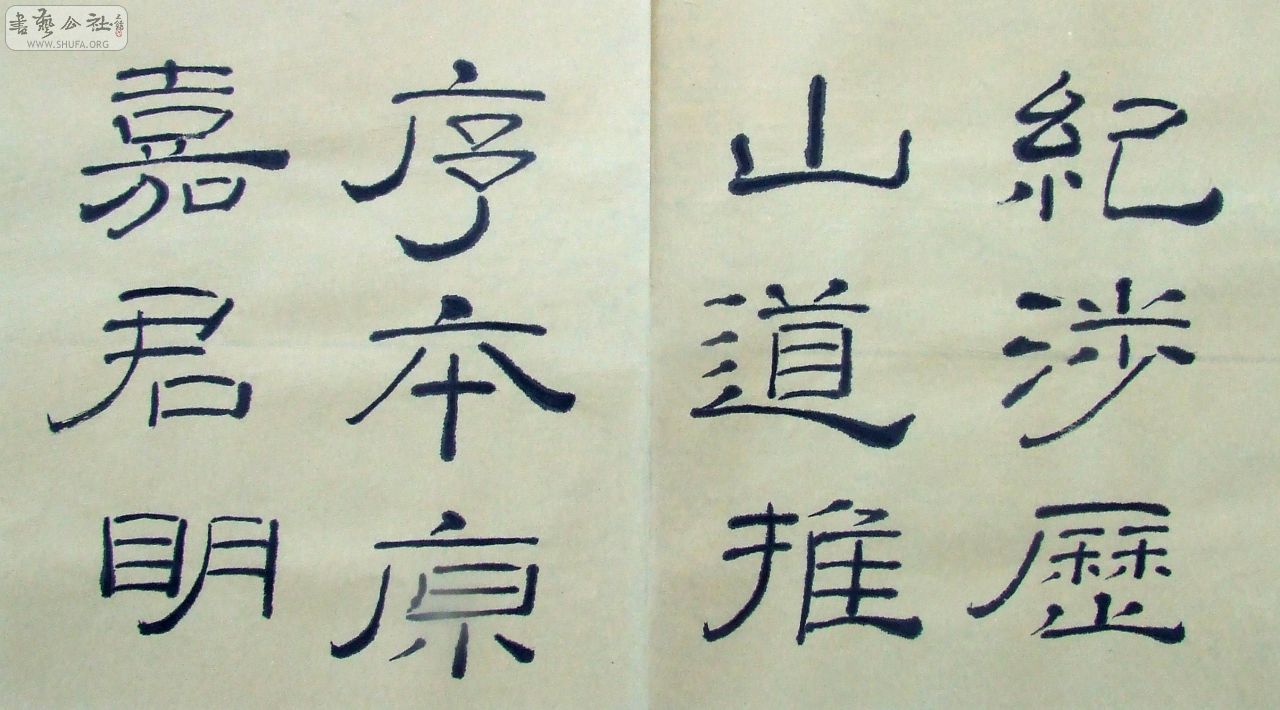 紀涉歷
山道推
序本原
嘉君明
書藝公社
WWW.SHUFA.ORG